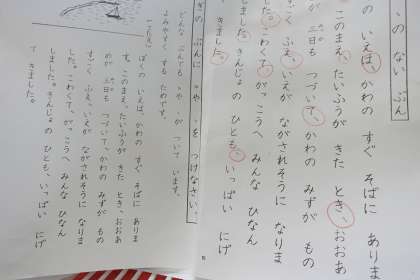 の ない ぶん
の いえは、かわの すぐ そばに ありま
このまえ、たいふうが きた とき、おおあ
が 三日も つづいて、かわの みずが もの
ごく ふえ、いえが ながされそうに なりま
した。こわくて、がっこうへ みんな ひなん
しました。きんじょの ひとも、いっぱい にげ
きました。
ぎの ぶんに 、や 。を つけなさい。
どんな ぶんでも 、や 。が ついて います。
よみやすく する ためです。
ぼくの いえは、かわの すぐ そばに ありま
す。このまえ、たいふうが きた とき、おおあ
めが 三日も つづいて、かわの みずが もの
すごく ふえ、いえが ながされそうに なりま
した。こわくて、がっこうへ みんな ひなん
しました。きんじょの ひとも、いっぱい にげ
て きました。